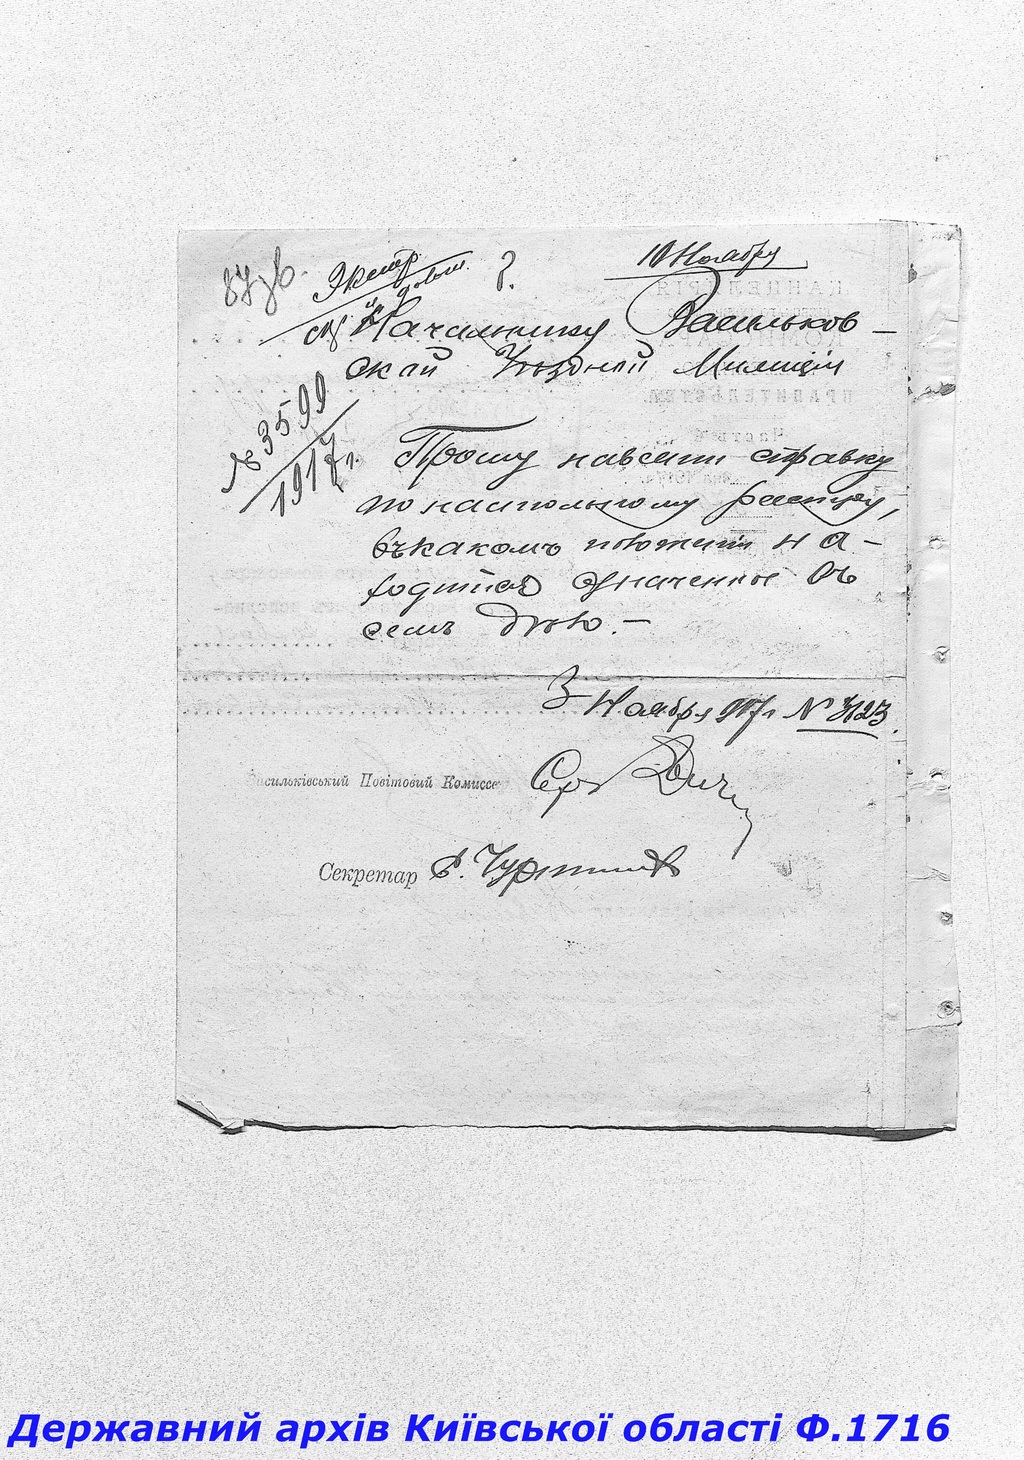 10 Ноября
Начальнику Васильков-
ской Уѣздной Милиціи
№ 3599
1917 г.
Прошу навести справку
по настольному реестру,
въ какомъ положеніи на-
ходится означенное въ
семъ дѣло.-
3 Ноября 917 г № 7123.
Васильківський Повітовий Комиссар
Секретар
Державний архів Київської області Ф.1716